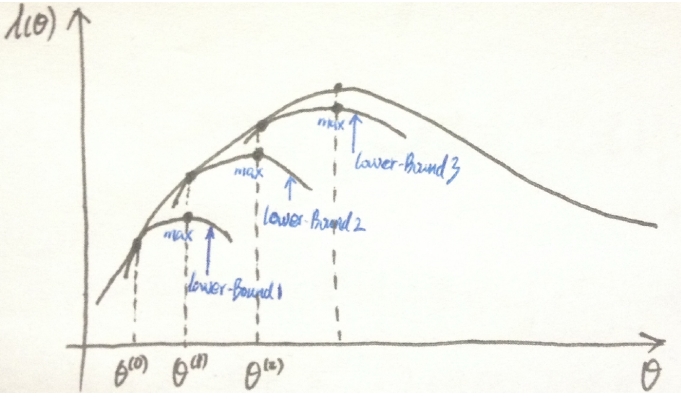 λ(θ)
max
lower-Bound 3
max
lower-Bound 2
max
lower-Bound 1
θ⁽⁰⁾ θ⁽¹⁾ θ⁽²⁾ θ